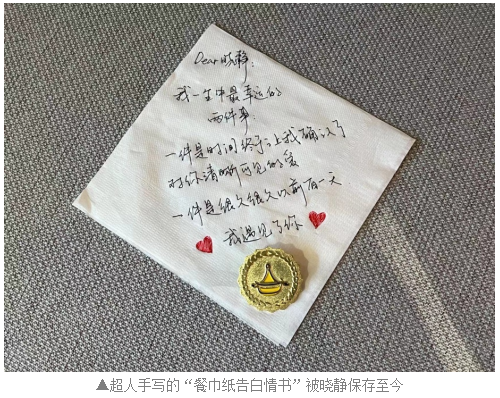 Dear晓静：
我一生中最幸运的
两件事：
一件是时间终于让我确认了
对你清晰可见的爱
一件是很久很久以前有一天
我遇见了你
▲超人手写的“餐巾纸告白情书”被晓静保存至今